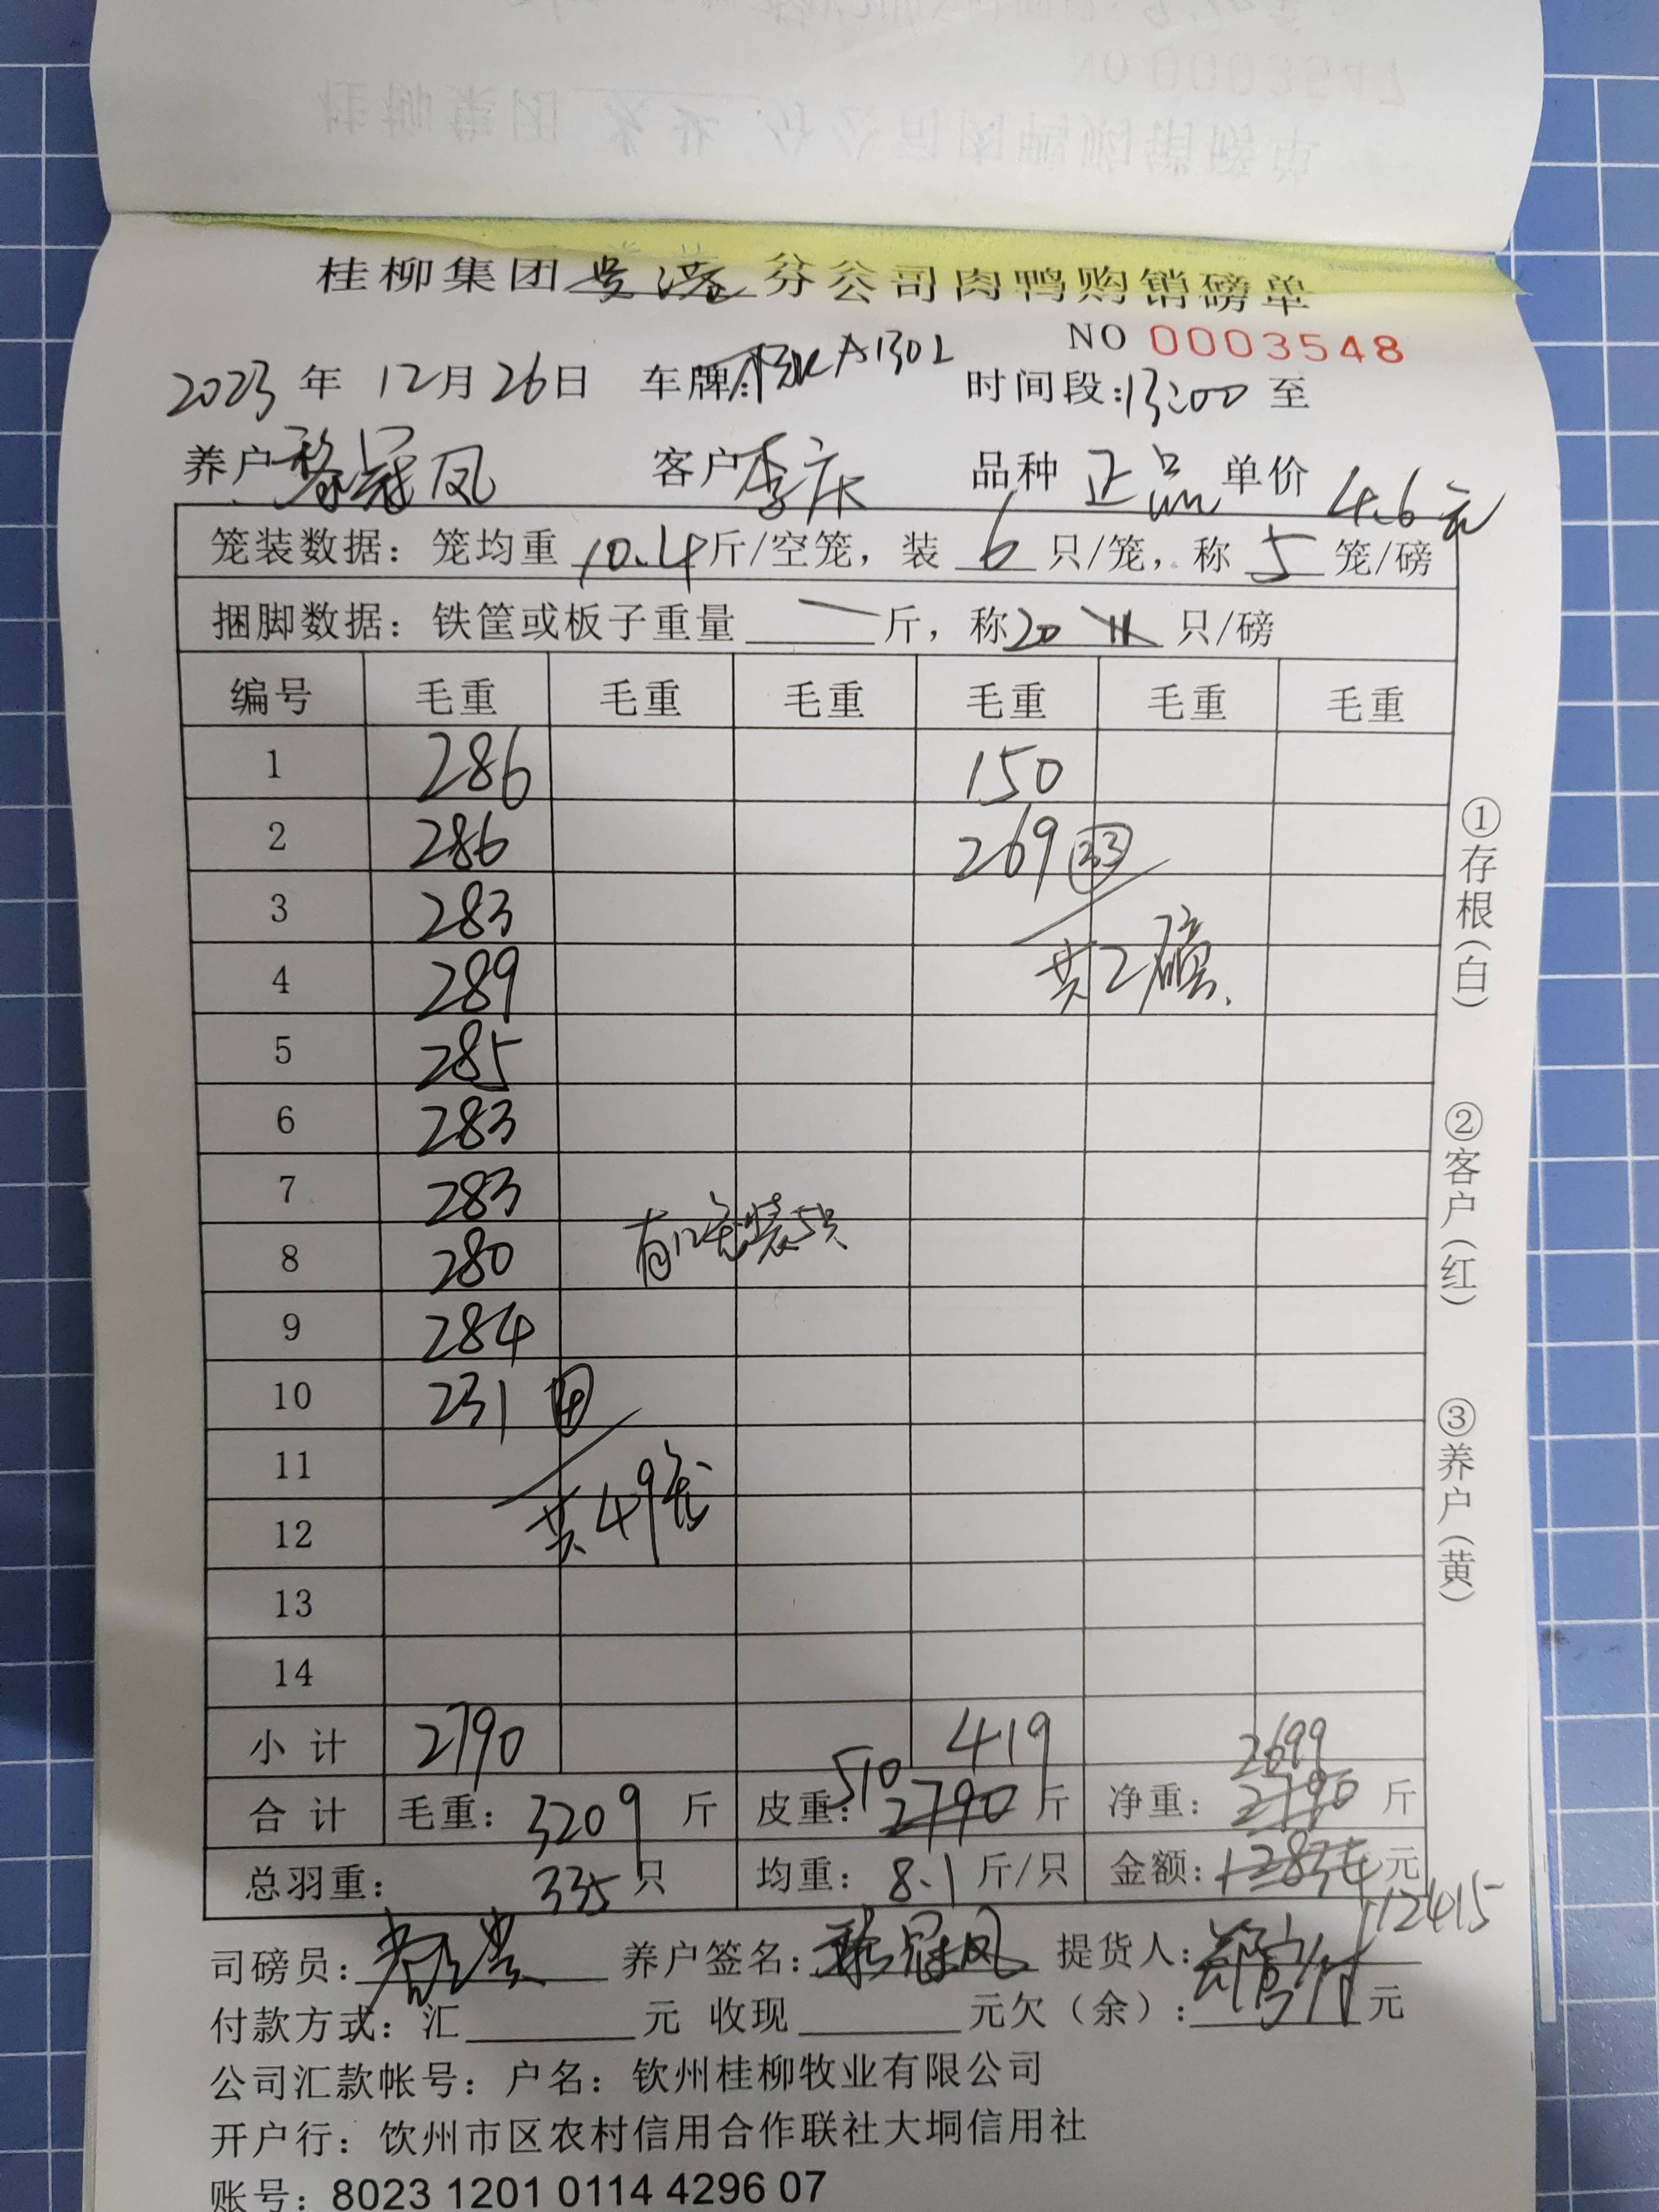 桂柳集团贵港分公司肉鸭购销磅单
NO 0003548
2023年12月26日 车牌:桂KA1302 时间段:13:00至
养户黎冠凤 客户李庆 品种正品 单价4.6元
笼装数据：笼均重10.4斤/空笼，装6只/笼，称5笼/磅
捆脚数据：铁筐或板子重量 斤，称20只/磅
编号 毛重 毛重 毛重 毛重 毛重 毛重
1 286 150
2 286 269 33
3 283
4 289 共2磅
5 285
6 283
7 283
8 280 有12笼装5只
9 284
10 231 4
11
12 共49笼
13
14
小计 2790 419 2699
合计 毛重：3209斤 皮重：510 2790斤 净重：2790斤
总羽重：335只 均重：8.1斤/只 金额：12834元
12415
司磅员： 养户签名：黎冠凤 提货人：
付款方式：汇 元 收现 元欠（余）： 元
公司汇款帐号：户名：钦州桂柳牧业有限公司
开户行：饮州市区农村信用合作联社大垌信用社
账号：8023 1201 0114 4296 07
①存根（白）
②客户（红）
③养户（黄）